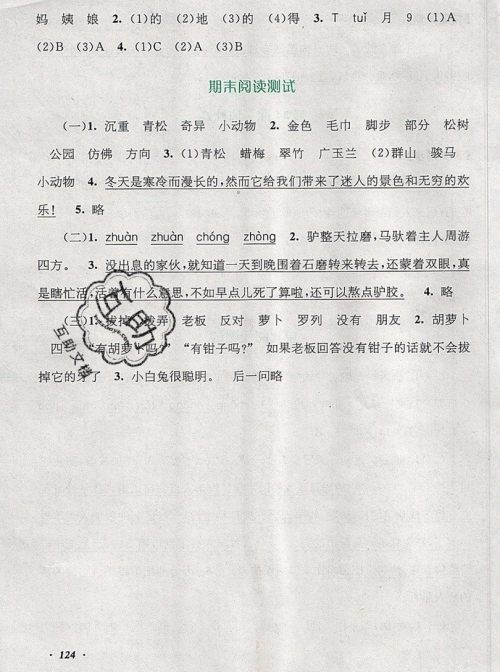 妈 姨 娘 2. (1)的 (2)地 (3)的 (4)得 3. T tuǐ 月 9 (1)A
(2)B (3)A 4. (1)C (2)A (3)B
期末阅读测试
(一)1. 沉重 青松 奇异 小动物 2. 金色 毛巾 脚步 部分 松树
公园 仿佛 方向 3. (1)青松 蜡梅 翠竹 广玉兰 (2)群山 骏马
小动物 4. 冬天是寒冷而漫长的,然而它给我们带来了迷人的景色和无穷的欢
乐! 5. 略
(二)1. zhuàn zhuàn chóng zhòng 2. 驴整天拉磨,马驮着主人周游
四方。 3. 没出息的家伙,就知道一天到晚围着石磨转来转去,还蒙着双眼,真
是瞎忙活,活着有什么意思,不如早点儿死了算啦,还可以熬点驴胶。 4. 略
(三)1. 拔掉 拨弄 老板 反对 萝卜 罗列 没有 朋友 2. 胡萝卜
四 “有胡萝卜吗?” “有钳子吗?” 如果老板回答没有钳子的话就不会拔
掉它的牙了 3. 小白兔很聪明。 后一问略
互助
互助文档
· 124 ·